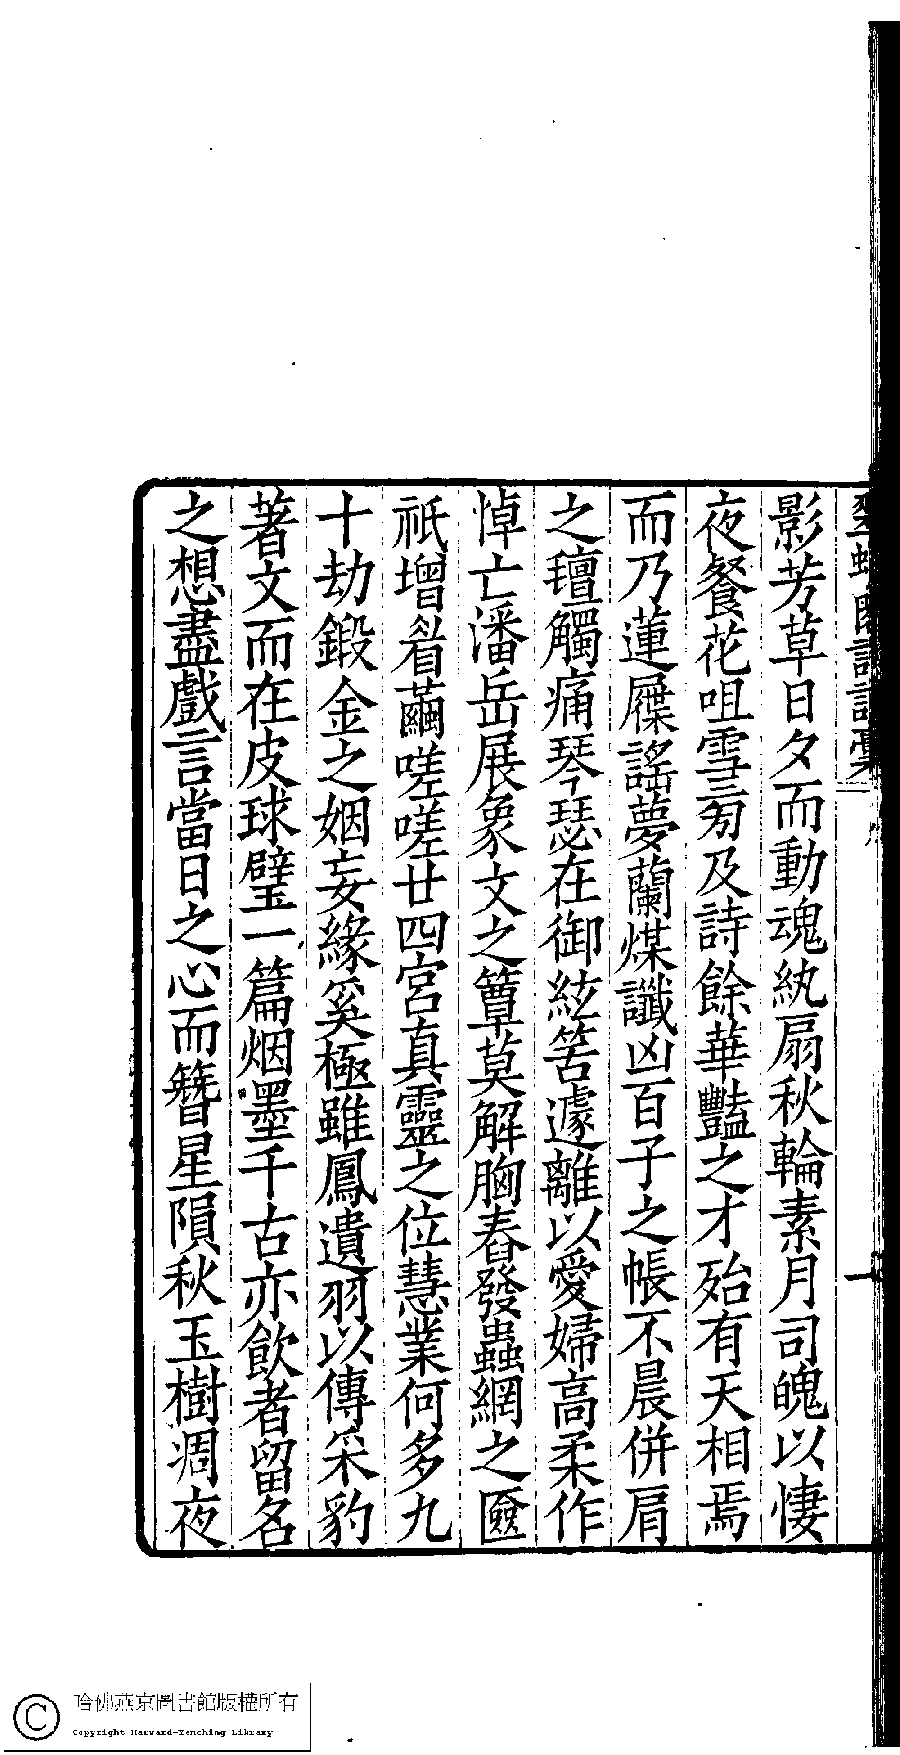 翠螺閣詩詞稾
一
影芳草日夕而動魂紈扇秋輪素月司魄以悽
夜餐花咀雪旁及詩餘華豔之才殆有天相焉
而乃蓮屧謠夢蘭煤讖凶百子之帳不晨併肩
之氊觸痛琴瑟在御絃筈遽離以愛婦高柔作
悼亡潘岳展象文之簟莫解胸舂發蟲網之匳
祇增眉繭嗟嗟廿四宮真靈之位慧業何多九
十劫鍛金之姻妄緣奚極雖鳳遺羽以傳采豹
著文而在皮球璧一篇烟墨千古亦飲者留名
之想盡戲言當日之心而簪星隕秋玉樹凋夜
哈佛燕京圖書館版權所有
Copyright Harvard-Yenching Library